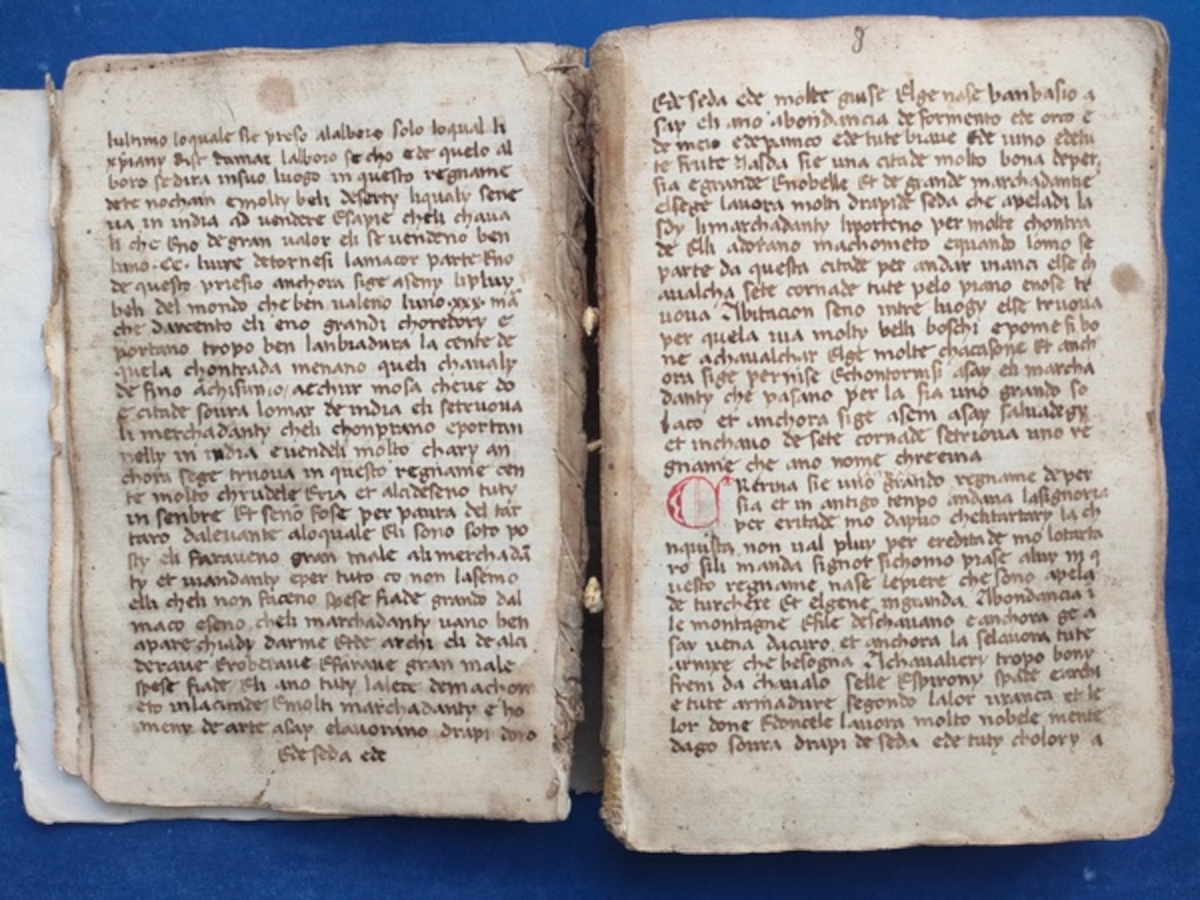 lultimo loquale sie preso alalboro solo loqual li
xpiany dise damar lalboro secho e de quelo al
boro se dira insuo luogo in questo regname
dete nochain e molty beli deserty liqualy sene
va in india ad vendere Esapie cheli chava
li che Eno de gran valor eli se vendeno ben
luno . CC . livre detornesi lamacor parte Eno
de questo priesio anchora sige aseny li pluy
beli del mondo che ben valeno luno .xxx. mã
che darcento eli eno grandi choredory e
portano tropo ben lanbiadura la cente de
quela chontrada menano queli chavaly
de fino achisi aechur mosa che ve do
E citade sovra lomar de india eli setruova
li merchadanty cheli chonprano eportan
nelly in india e vendeli molto chary an
chora sege truova in questo regname cen
te molto chrudele Eria et alcideseno tuty
in senbre Et seno fose per paura del tar
taro dalevante aloquale Eli sono soto po
sty eli faraveno gran male ali merchadã
ty et viandanty e per tuto co non lasemo
elli cheli non faceno spese fiade grando dal
maco eseno cheli marchadanty vano ben
aparechiady darme Et de archi eli de alci
derave Eroberave Efarave gran male
spese fiade Eli ano tuty lalece de machom
eto in la citade E molti marchadanty e ho
meny de arte asay elavorano drapi doro
Ede seda ede
8
Ede seda ede molte guise Elge nase banbasio a
say eli ano abondancia de formento ede orco e
de meio ede panico ede tute biave Ede vino ede tu
te frute Iasda sie una citade molto bona de per
sia e grande Enobelle Et de grande marchadantie
elsege lavora molti drapi de seda che apeladi la
sdy li marchadanty li porteno per molte chontra
de Elli adorano machometo e quando lomo se
parte da questa citade per andar inanci else ch
avalcha sete cornade tute pelo piano enose tr
vova Abitacion seno intre luogy else truova
per quela via molty belli boschi e pome si bo
ne achavalchar Elge molte chacasone Et anch
ora sige pernise Echontornisi asay eli marcha
danty che pasano per la sia uno grando so
laco et anchora sige asem asay salvadegy
et in chavo de sete cornade se triova uno re
gname che ano nome chrerina
Chrerina sie uno grando regname de per
sia et in antigo tenpo andava lasignoria
per eritade mo dapuo cheli tartary la ch
nquista non val pluy per eredita de mo lotarta
ro sili manda signor sichomo piase aluy in q
uesto regname nase le piere che sono apela
de turchere Et elgene in granda Abondancia i
le montagne E sile deschavano e anchora ge a
say vena dacuro et anchora la selavora tute
arnixe che besogna Achavaliery tropo bony
freni da chavalo selle Espirony spade earchi
e tute armadure segondo lalor uxanca et le
lor done Edoncele lavora molto nobele mente
dago sovra drapi de seda ede tuty cholory a